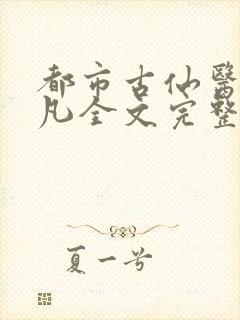 都市古仙醫
凡全文完整
夏一兮